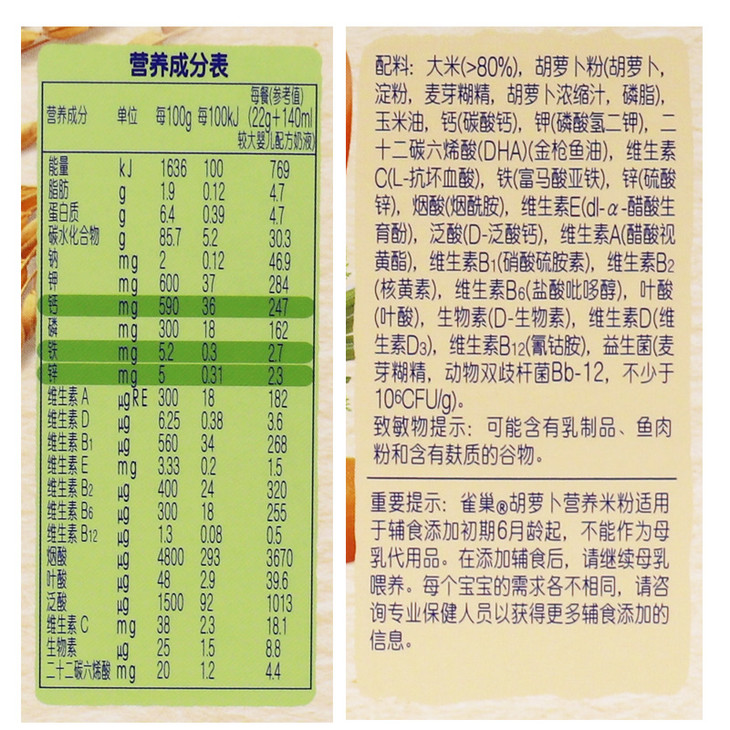 营养成分表
每餐(参考值)
营养成分 单位 每100g 每100kJ (22g+140ml
较大婴儿配方奶液)
能量 kJ 1636 100 769
脂肪 g 1.9 0.12 4.7
蛋白质 g 6.4 0.39 4.7
碳水化合物 g 85.7 5.2 30.3
钠 mg 2 0.12 46.9
钾 mg 600 37 284
钙 mg 590 36 247
磷 mg 300 18 162
铁 mg 5.2 0.3 2.7
锌 mg 5 0.31 2.3
维生素 A μgRE 300 18 182
维生素 D μg 6.25 0.38 3.6
维生素 B1 μg 560 34 268
维生素 E mg 3.33 0.2 1.5
维生素 B2 μg 400 24 320
维生素 B6 μg 300 18 255
维生素 B12 μg 1.3 0.08 0.5
烟酸 μg 4800 293 3670
叶酸 μg 48 2.9 39.6
泛酸 μg 1500 92 1013
维生素 C mg 38 2.3 18.1
生物素 μg 25 1.5 8.8
二十二碳六烯酸 mg 20 1.2 4.4
配料: 大米(>80%), 胡萝卜粉(胡萝卜,
淀粉, 麦芽糊精, 胡萝卜浓缩汁, 磷脂),
玉米油, 钙(碳酸钙), 钾(磷酸氢二钾), 二
十二碳六烯酸(DHA)(金枪鱼油), 维生素
C(L-抗坏血酸), 铁(富马酸亚铁), 锌(硫酸
锌), 烟酸(烟酰胺), 维生素E(dl-α-醋酸生
育酚), 泛酸(D-泛酸钙), 维生素A(醋酸视
黄酯), 维生素B1(硝酸硫胺素), 维生素B2
(核黄素), 维生素B6(盐酸吡哆醇), 叶酸
(叶酸), 生物素(D-生物素), 维生素D(维
生素D3), 维生素B12(氰钴胺), 益生菌(麦
芽糊精, 动物双歧杆菌Bb-12, 不少于
10⁶CFU/g)。
致敏物提示: 可能含有乳制品、鱼肉
粉和含有麸质的谷物。
重要提示: 雀巢®胡萝卜营养米粉适用
于辅食添加初期6月龄起, 不能作为母
乳代用品。在添加辅食后, 请继续母乳
喂养。每个宝宝的需求各不相同, 请咨
询专业保健人员以获得更多辅食添加的
信息。